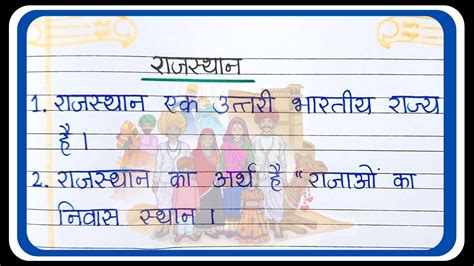 राजस्थान
1. राजस्थान एक उत्तरी भारतीय राज्य
है।
2. राजस्थान का अर्थ है "राजाओं का
निवास स्थान।